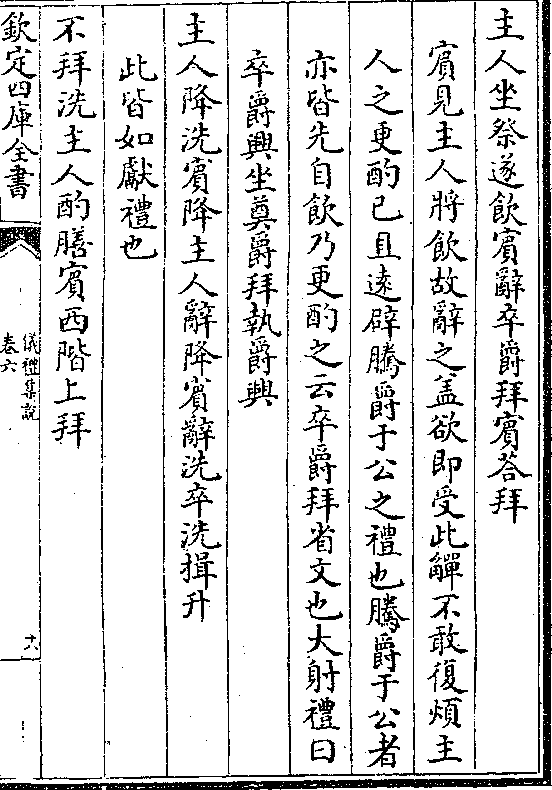 主人坐祭遂飲賓辭卒爵拜賓荅拜
賓見主人將飲故辭之盖欲即受此觶不敢復煩主
人之更酌已且逺辟騰爵于公之禮也騰爵于公者
亦皆先自飲乃更酌之云卒爵拜省文也大射禮曰
卒爵興坐奠爵拜執爵興
主人降洗賓降主人辭降賓辭洗卒洗揖升
此皆如獻禮也
不拜洗主人酌膳賓西階上拜
欽定四庫全書
儀禮集說
卷六